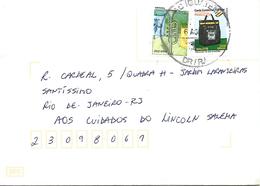 R. CARDEAL, 5 / QUADRA H - JARDIM LARANJEIRAS
SANTÍSSIMO
RIO DE JANEIRO - RJ
AOS CUIDADOS DO LINCOLN SALEMA
23098061